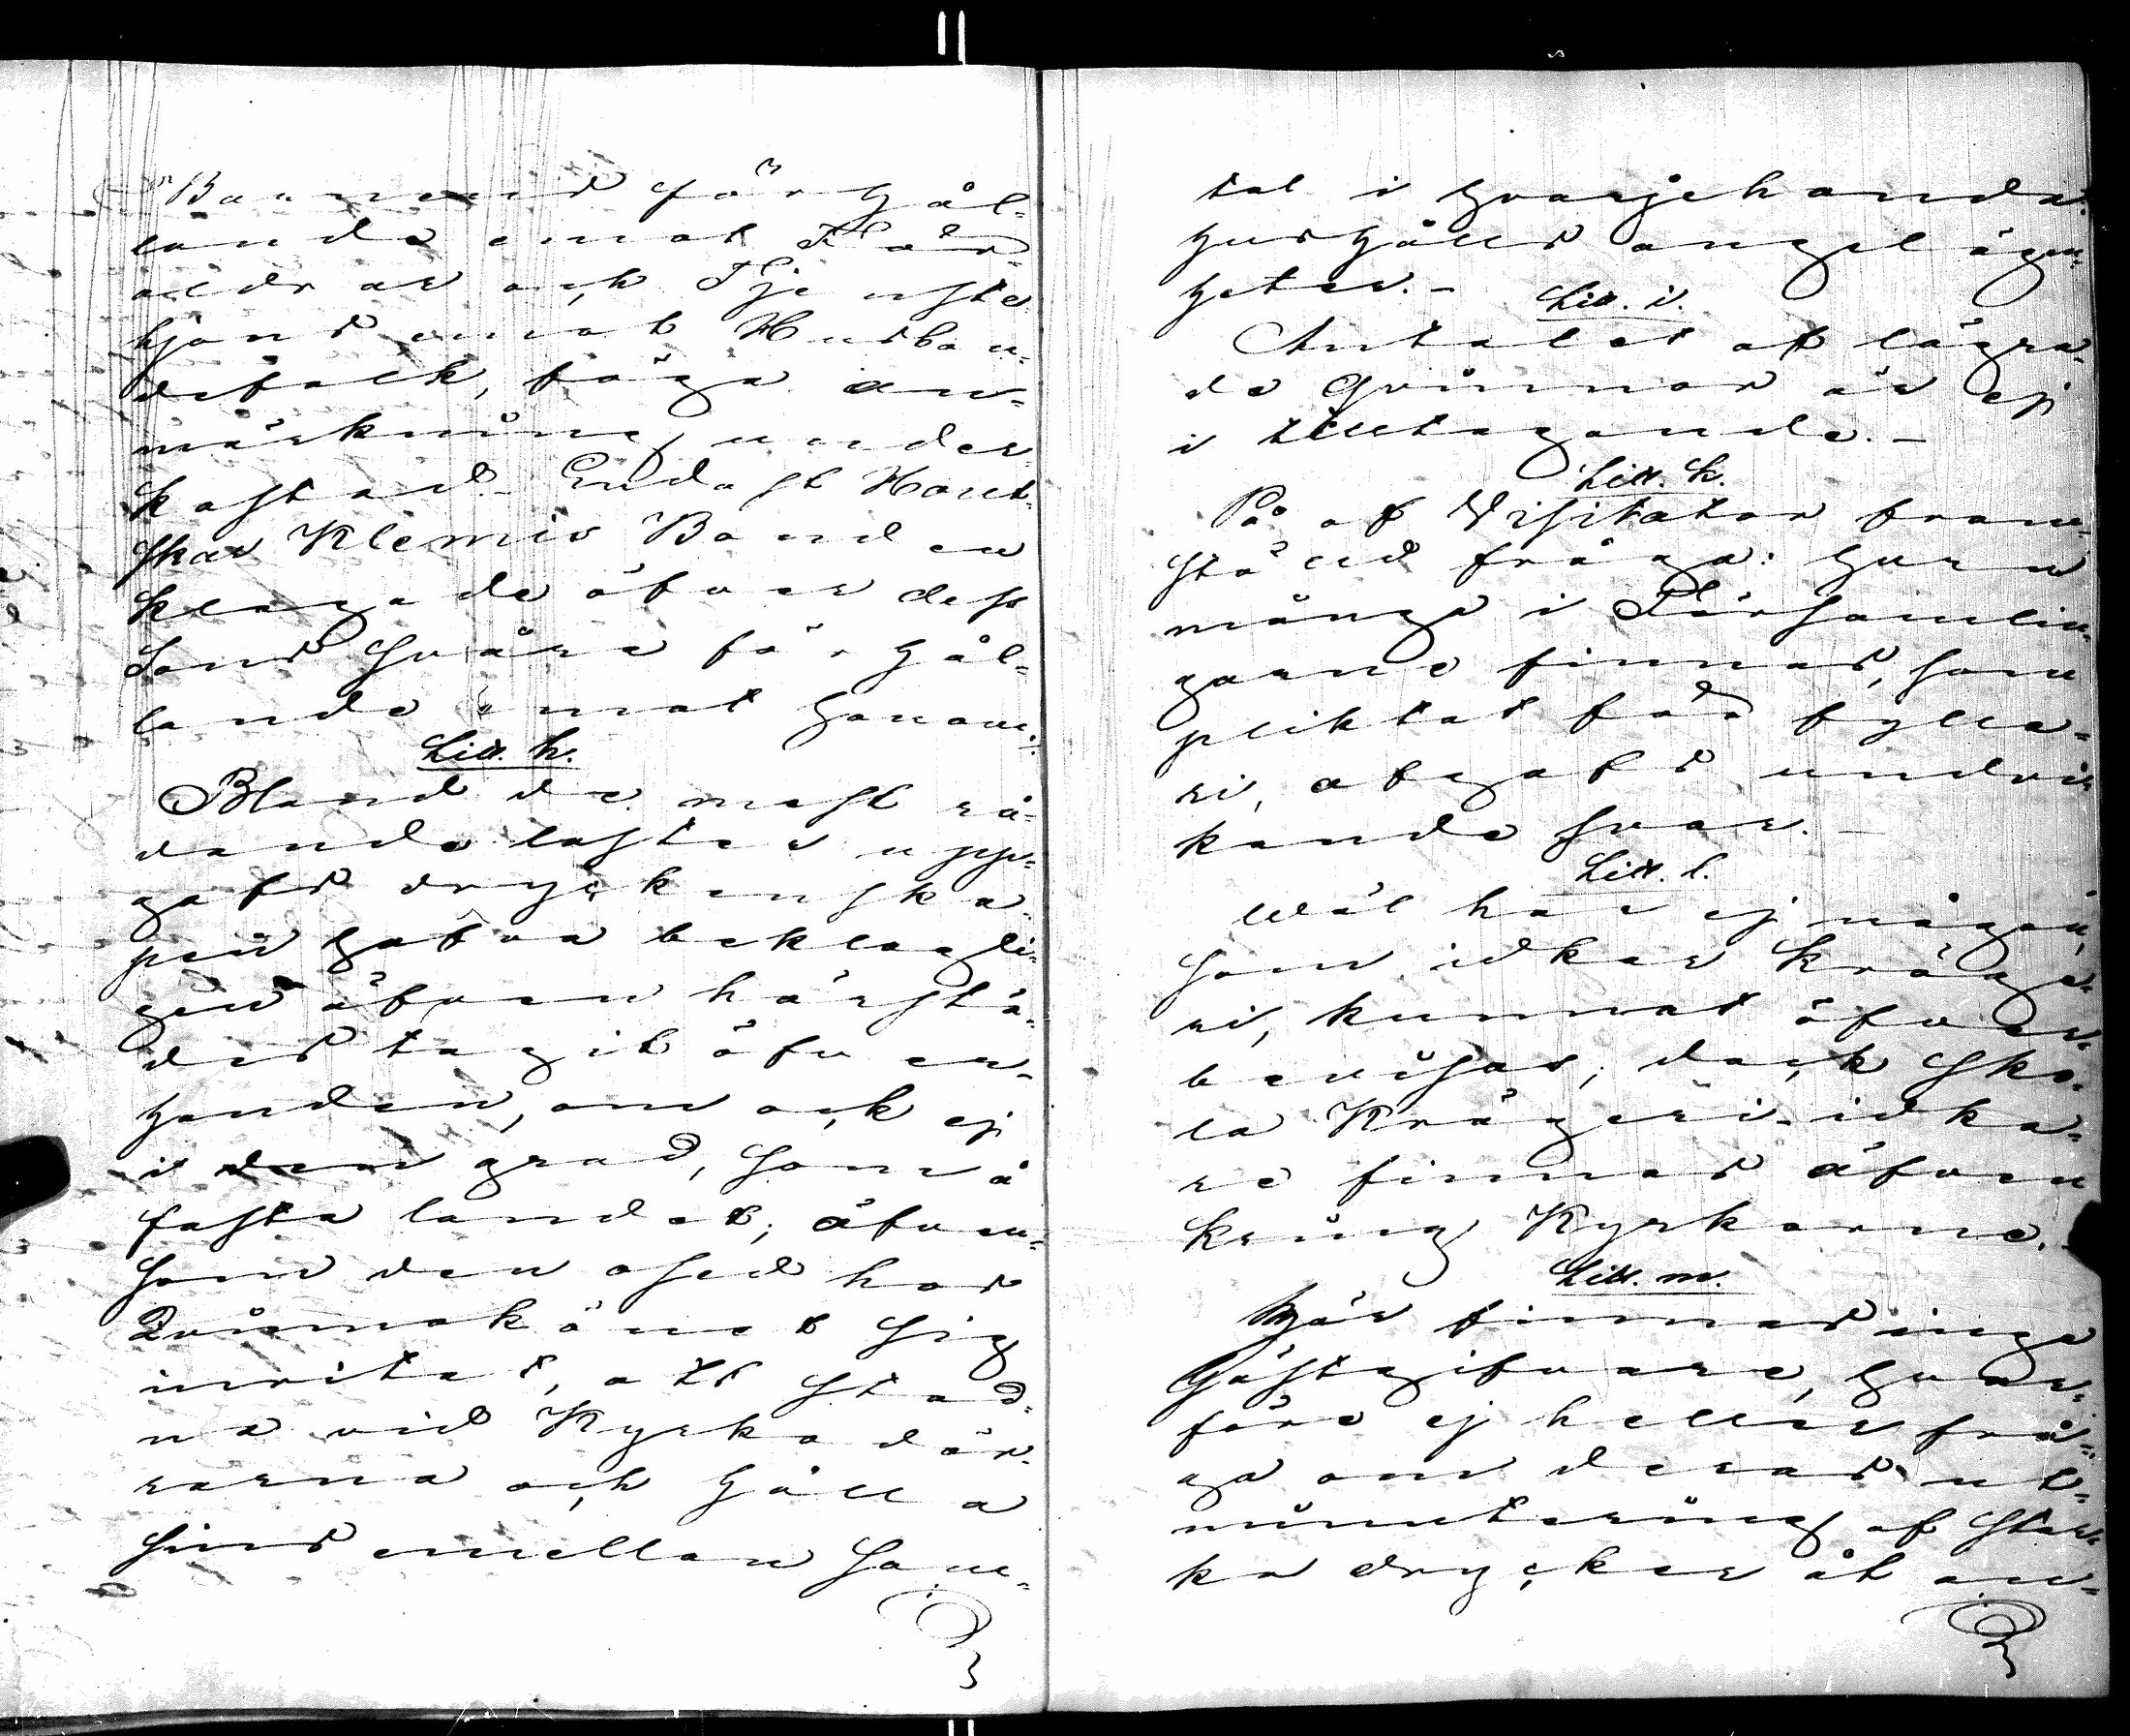 Barnens förhål-
lande emot Föräl-
aldrar och Tjenste-
hjons emot Husbon-
defolk, föga an-
märkning under-
kastad. Endast
Klemis Bonden
klagade öfver dess
Sons svåra förhål-
lande emot honom.
Litt. h.
Bland de mest rå-
dande laster upp-
gafs dryckenska-
pen hafva beklagli-
gen äfven härstä-
des tagit öfver-
handen, om ock ej
i den grad, som å
fasta landet; äfven-
som den osed hos
Qvinnokönet sig
inritat, att stad-
na vid Kyrkodör-
rarna och hålla
sins emellan Sam-
tal i hvarjehanda
hushålls angelägen-
heter.-
Litt. i.
Antalet af lägra-
de Qvinnor är ej
i tilltagande.-
Litt. k.
På af Visitator fram-
stäld fråga: huru
många i Församlin-
garne finnas, som
pliktat för fylle-
ri, afgafs undvi-
kande svar.-
Litt. l.
Wäl har ej någon,
som idkar kröge-
ri, kunnat öfver-
bevisas; dock sko-
la Krögeri-idka-
re finnas äfven
kring Kyrkorne.-
Litt. m.
Här finnas inga
Gästgifvare, hvar-
före ej heller frå-
ga om deras ut-
minutering af star-
ka drycker åt an-